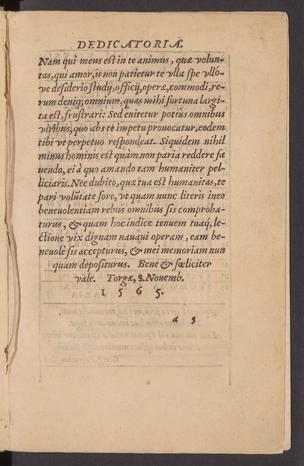 DEDICATORIA.
Nam qui meus est in te animus, quæ volun-
tas, qui amor, is non patietur te vlla spe vllo-
ve desiderio studij, officij, operæ, commodi, re-
rum deniq; omnium, quas mihi fortuna largi-
ta est, frustrari: Sed enitetur potius omnibus
viribus, quo abs te impetu prouocatur, eodem
tibi vt perpetuo respondeat. Siquidem nihil
minus hominis est quam non paria reddere fa
uendo, ei à quo amando tam humaniter pel-
liciaris. Nec dubito, quæ tua est humanitas, te
pari volũtate fore, vt quam nunc literis meo
beneuolentiam rebus omnibus sis comproba-
turus, & quam hoc indice tenuem tuaq; le-
ctione vix dignam nauaui operam, eam be-
neuolè sis accepturus, & mei memoriam nun
quam depositurus. Bene & fœliciter
vale. Torgæ, 8. Nouemb.
1 5 6 5.
a 3